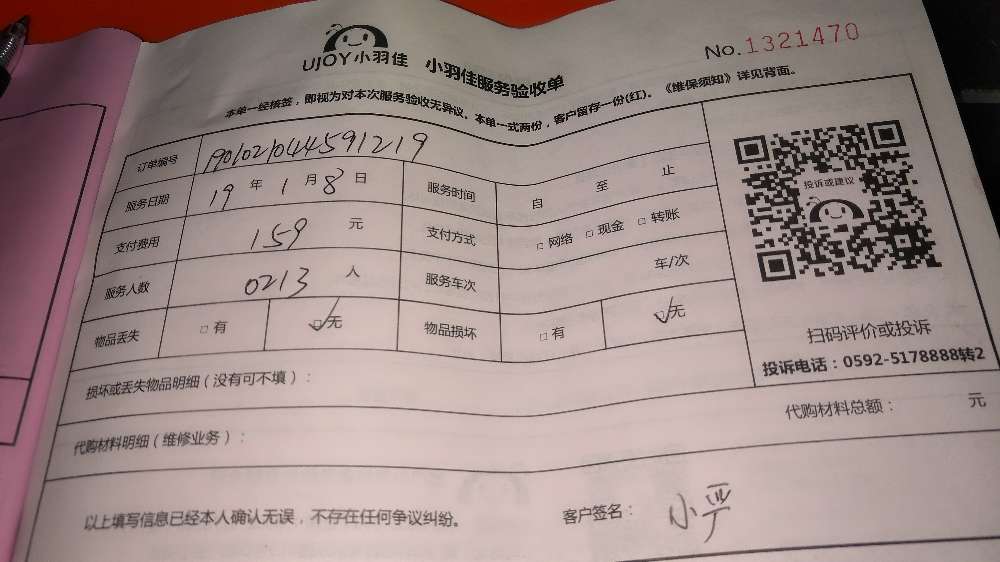 UJOY小羽佳 小羽佳服务验收单 No.1321470
本单一经核签，即视为对本次服务验收无异议。本单一式两份，客户留存一份(红)。《维保须知》详见背面。
订单编号 190102104459 1219
服务日期 19 年 1 月 8 日 服务时间 自 至 止
支付费用 159 元 支付方式 □ 网络 □ 现金 □ 转账
服务人数 0213 人 服务车次 车/次
物品丢失 □ 有 ☑ 无 物品损坏 □ 有 ☑ 无
投诉或建议
扫码评价或投诉
投诉电话：0592-5178888转2
损坏或丢失物品明细（没有可不填）：
代购材料明细（维修业务）： 代购材料总额： 元
以上填写信息已经本人确认无误，不存在任何争议纠纷。 客户签名： 小严